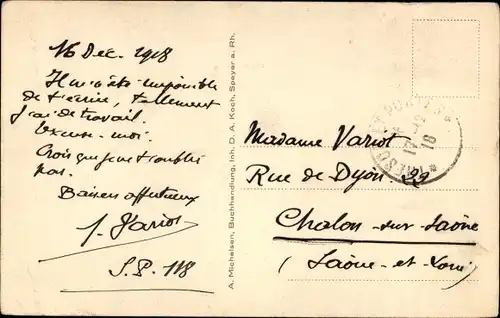 16 Dec. 1918
Il m'a été impossible
de t'écrire, tellement
j'ai de travail.
Excuse-moi.
Crois que je ne t'oublie
pas.
Baisers affectueux
J. Variot
S.P. 118
A. Michelsen, Buchhandlung, Inh. D. A. Koch, Speyer a. Rh.
TRESOR ET POSTES
17-12
18
Madame Variot
Rue de Dijon. 29
Chalon-sur-Saône
(Saône-et-Loire)